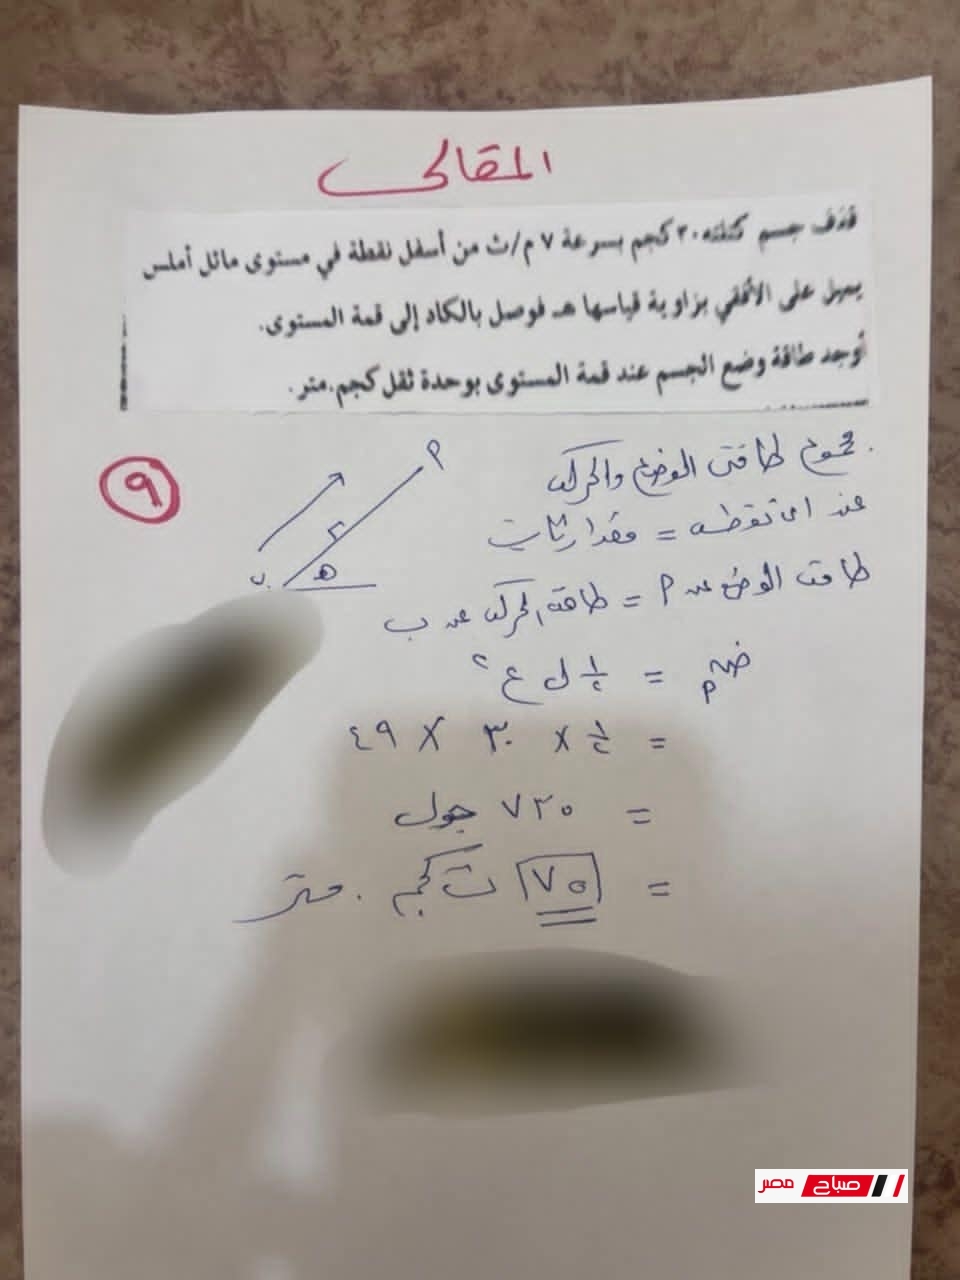 المقالى
قذف جسم كتلته ٣٠ كجم بسرعة ٧ م/ث من أسفل نقطة في مستوى مائل أملس
يميل على الأفقي بزاوية قياسها هـ فوصل بالكاد إلى قمة المستوى.
أوجد طاقة وضع الجسم عند قمة المستوى بوحدة ثقل كجم.متر.
٩
م
ف
ب
هـ
مجموع طاقتى الوضع والحركة
عند اى نقطه = مقدار ثابت
طاقة الوضع عند م = طاقة الحركة عند ب
ضم = ١/٢ ك ع ٢
= ١/٢ × ٣٠ × ٤٩
= ٧٣٥ جول
= ٧٥ ث كجم . متر
صباح مصر